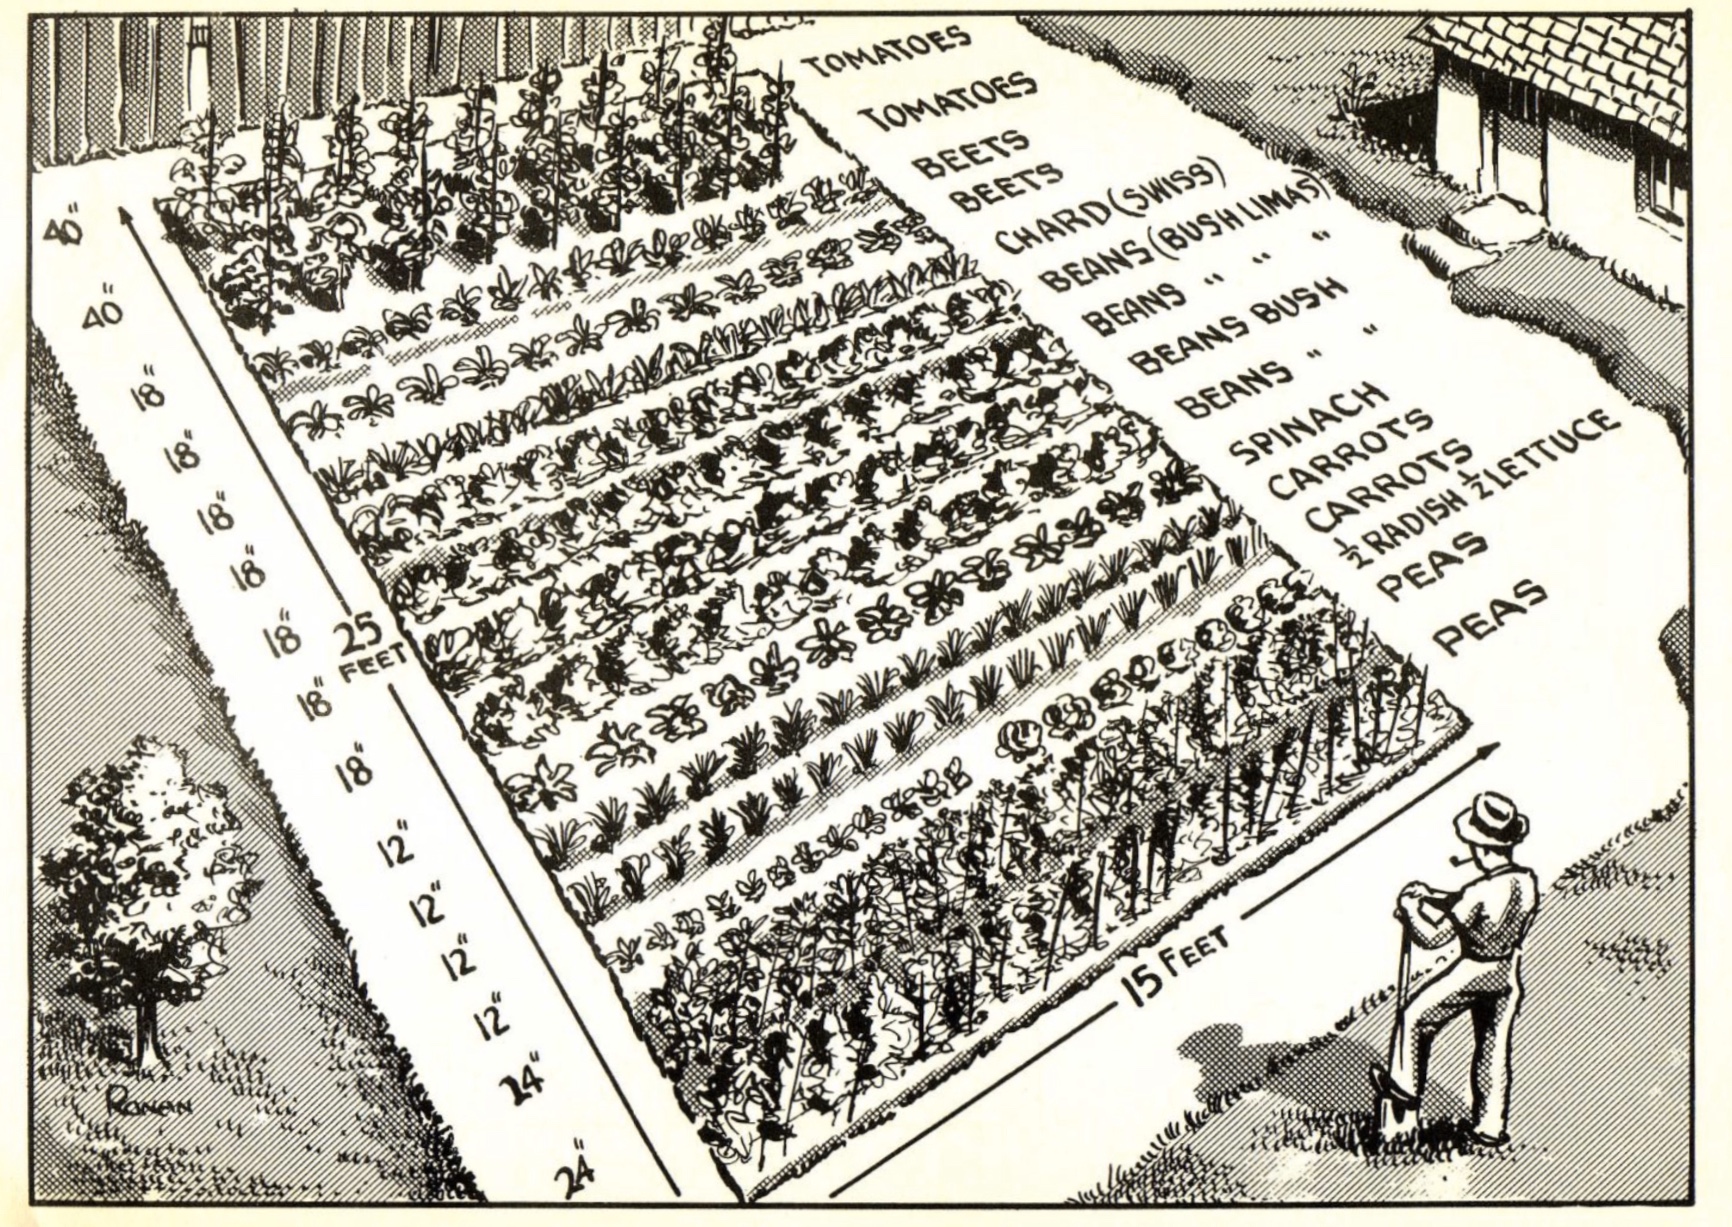 TOMATOES
TOMATOES
BEETS
BEETS
CHARD (SWISS)
BEANS (BUSH LIMAS)
BEANS " " "
BEANS BUSH
BEANS " "
SPINACH
CARROTS
CARROTS
½ RADISH ½ LETTUCE
PEAS
PEAS
40"
40"
18"
18"
18"
18"
18"
18"
18"
12"
12"
12"
12"
24"
24"
25
FEET
15 FEET
RONAN